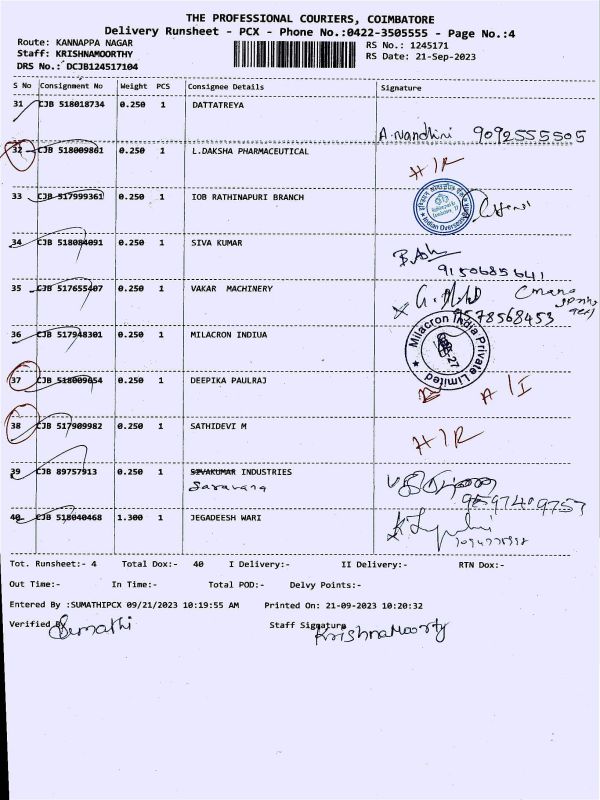 THE PROFESSIONAL COURIERS, COIMBATORE
Delivery Runsheet - PCX - Phone No.:0422-3505555 - Page No.:4
Route: KANNAPPA NAGAR
Staff: KRISHNAMOORTHY
DRS No.: DCJB124517104
RS No.: 1245171
RS Date: 21-Sep-2023
S No Consignment No Weight PCS Consignee Details Signature
31 CJB 518018734 0.250 1 DATTATREYA
A.Nandhini 9092555505
32 CJB 518009801 0.250 1 L.DAKSHA PHARMACEUTICAL
H/R
33 CJB 517999361 0.250 1 IOB RATHINAPURI BRANCH
Indian Overseas
34 CJB 518084091 0.250 1 SIVA KUMAR
9150685641
35 CJB 517655407 0.250 1 VAKAR MACHINERY
9578568453
36 CJB 517948301 0.250 1 MILACRON INDIUA
Milacron India Private Limited
37 CJB 518009654 0.250 1 DEEPIKA PAULRAJ
A/I
38 CJB 517909982 0.250 1 SATHIDEVI M
H/R
39 CJB 89757913 0.250 1 SIVAKUMAR INDUSTRIES
Saravana
9597409757
40 CJB 518040468 1.300 1 JEGADEESH WARI
Tot. Runsheet:- 4 Total Dox:- 40 I Delivery:- II Delivery:- RTN Dox:-
Out Time:- In Time:- Total POD:- Delvy Points:-
Entered By :SUMATHIPCX 09/21/2023 10:19:55 AM Printed On: 21-09-2023 10:20:32
Verified By Sumathi Staff Signature KrishnaMoorty